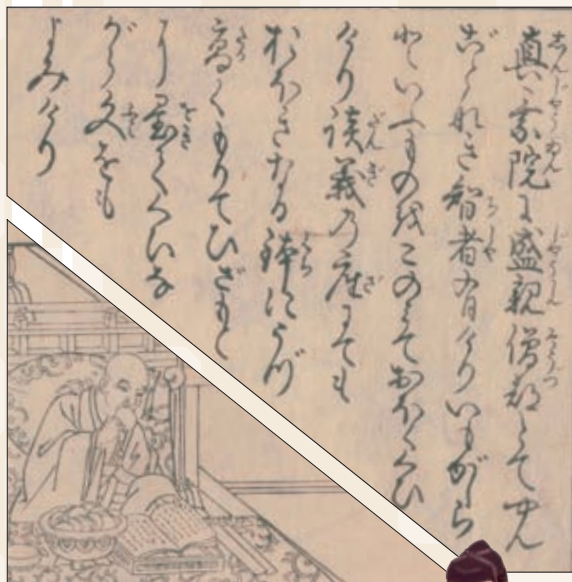 真乗院に盛親僧都とてやん
ごとなき智者有けりいもがしら
といふものをこのみておほくくひ
けり談義の座にても
おほきなる鉢にうづ
高くもりてひざもと
に置てくいな
がら文をも
よみけり